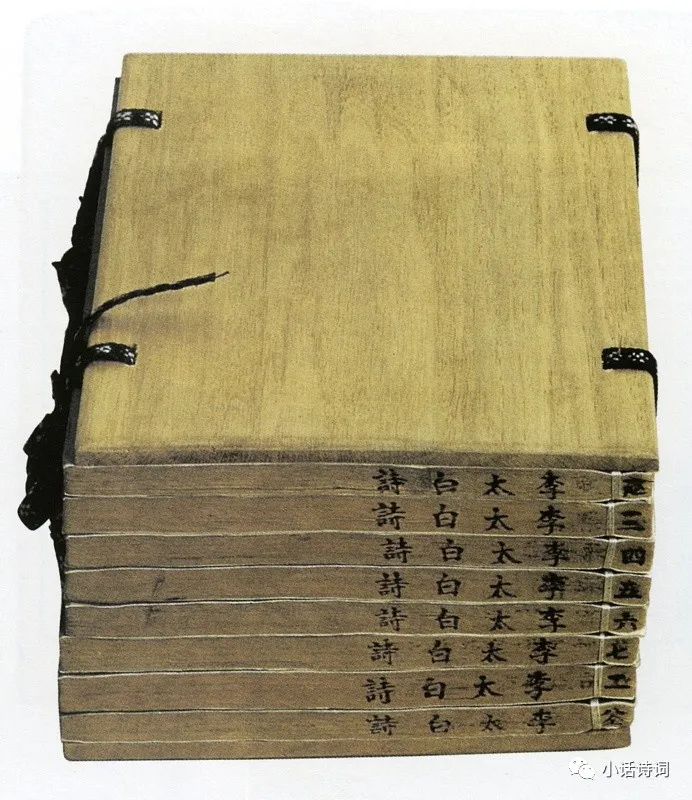 李太白詩
三 李太白詩
四 李太白詩
五 李太白詩
六 李太白詩
七 李太白詩
李太白詩
李太白詩
小话诗词